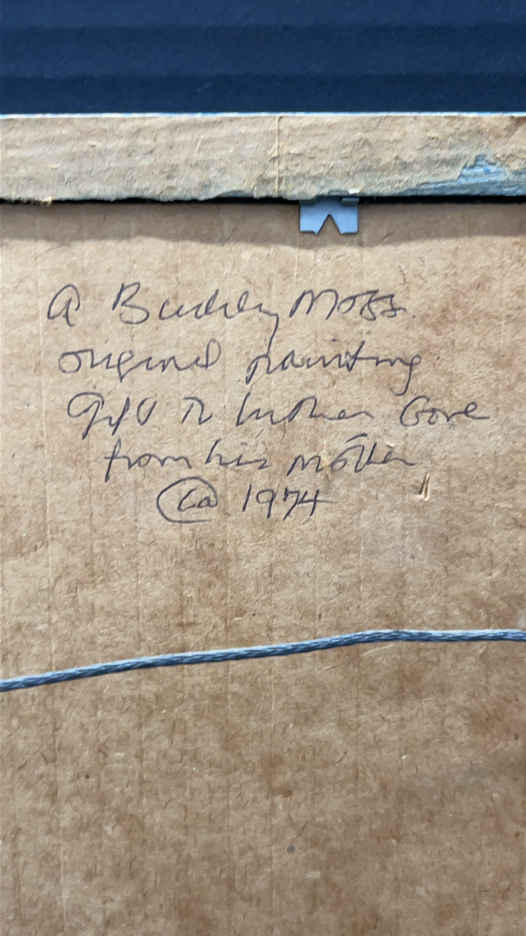 A Buddy Moss
original painting
gift to Luther Gore
from his mother
ca 1974